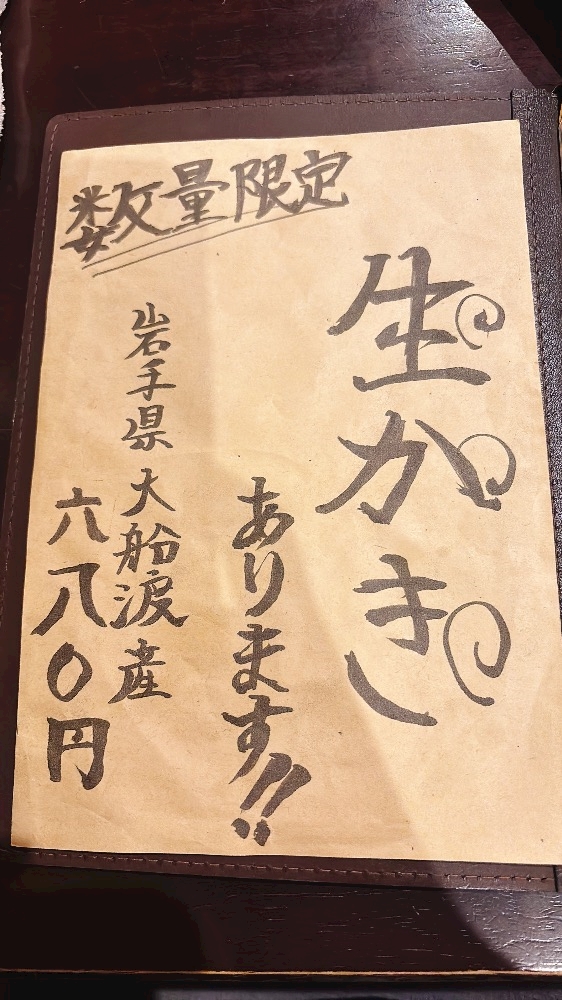 数量限定
生かき
あります!!
岩手県大船渡産
六八〇円